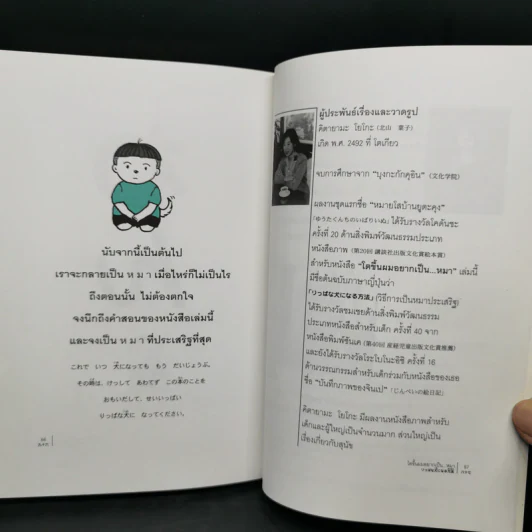 นับจากนี้เป็นต้นไป
เราจะกลายเป็น ห ม า เมื่อไหร่ก็ไม่เป็นไร
ถึงตอนนั้น ไม่ต้องตกใจ
จงนึกถึงคำสอนของหนังสือเล่มนี้
และจงเป็น ห ม า ที่ประเสริฐที่สุด
これで いつ 犬になっても もう だいじょうぶ。
その時は、けっして あわてず この本のことを
おもいだして、せいいっぱい
りっぱな犬に なってください。
ผู้ประพันธ์เรื่องและวาดรูป
คิตายามะ โยโกะ (北山 葉子)
เกิด พ.ศ. 2492 ที่ โตเกียว
จบการศึกษาจาก "บุงกะกักคุอิน" (文化学院)
ผลงานชุดแรกชื่อ "หมายโสบ้านยูตะคุง"
「ゆうたくんちのいばりいぬ」 ได้รับรางวัลโคดันชะ
ครั้งที่ 20 ด้านสิ่งพิมพ์วัฒนธรรมประเภท
หนังสือภาพ (第20回 講談社出版文化賞絵本賞)
สำหรับหนังสือ "ใดขึ้นผมอยากเป็น...หมา" เล่มนี้
มีชื่อต้นฉบับภาษาญี่ปุ่นว่า
「りっぱな犬になる方法」 (วิธีการเป็นหมาประเสริฐ)
ได้รับรางวัลชมเชยด้านสิ่งพิมพ์วัฒนธรรม
ประเภทหนังสือสำหรับเด็ก ครั้งที่ 40 จาก
หนังสือพิมพ์ซันเค (第40回 産経児童出版文化賞推薦)
และยังได้รับรางวัลโระโบโนะอิชิ ครั้งที่ 16
ด้านวรรณกรรมสำหรับเด็กร่วมกับหนังสือของเธอ
ชื่อ "บันทึกภาพของจินเป" 「じんぺいの絵日記」
คิตายามะ โยโกะ มีผลงานหนังสือภาพสำหรับ
เด็กและผู้ใหญ่เป็นจำนวนมาก ส่วนใหญ่เป็น
เรื่องเกี่ยวกับสุนัข
67